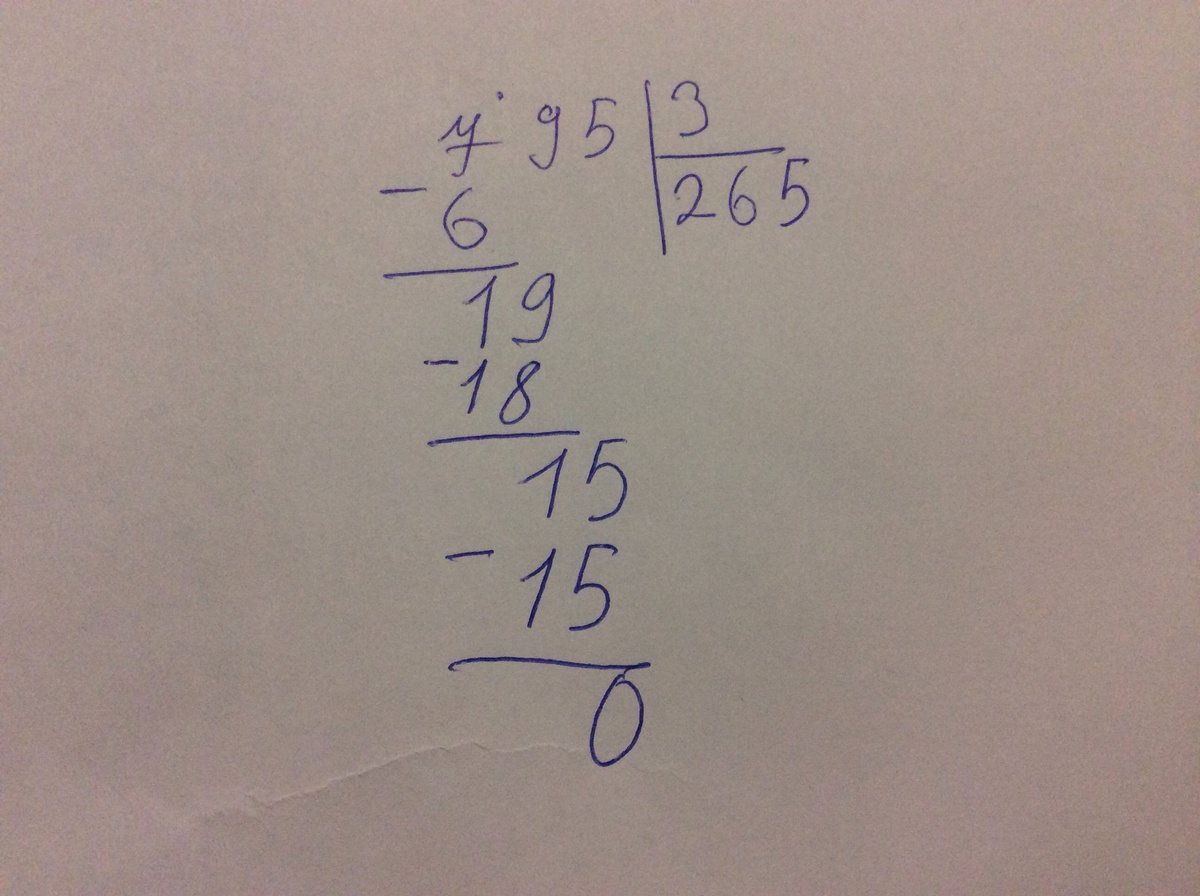 795 3
- 6 265
19
- 18
15
- 15
0